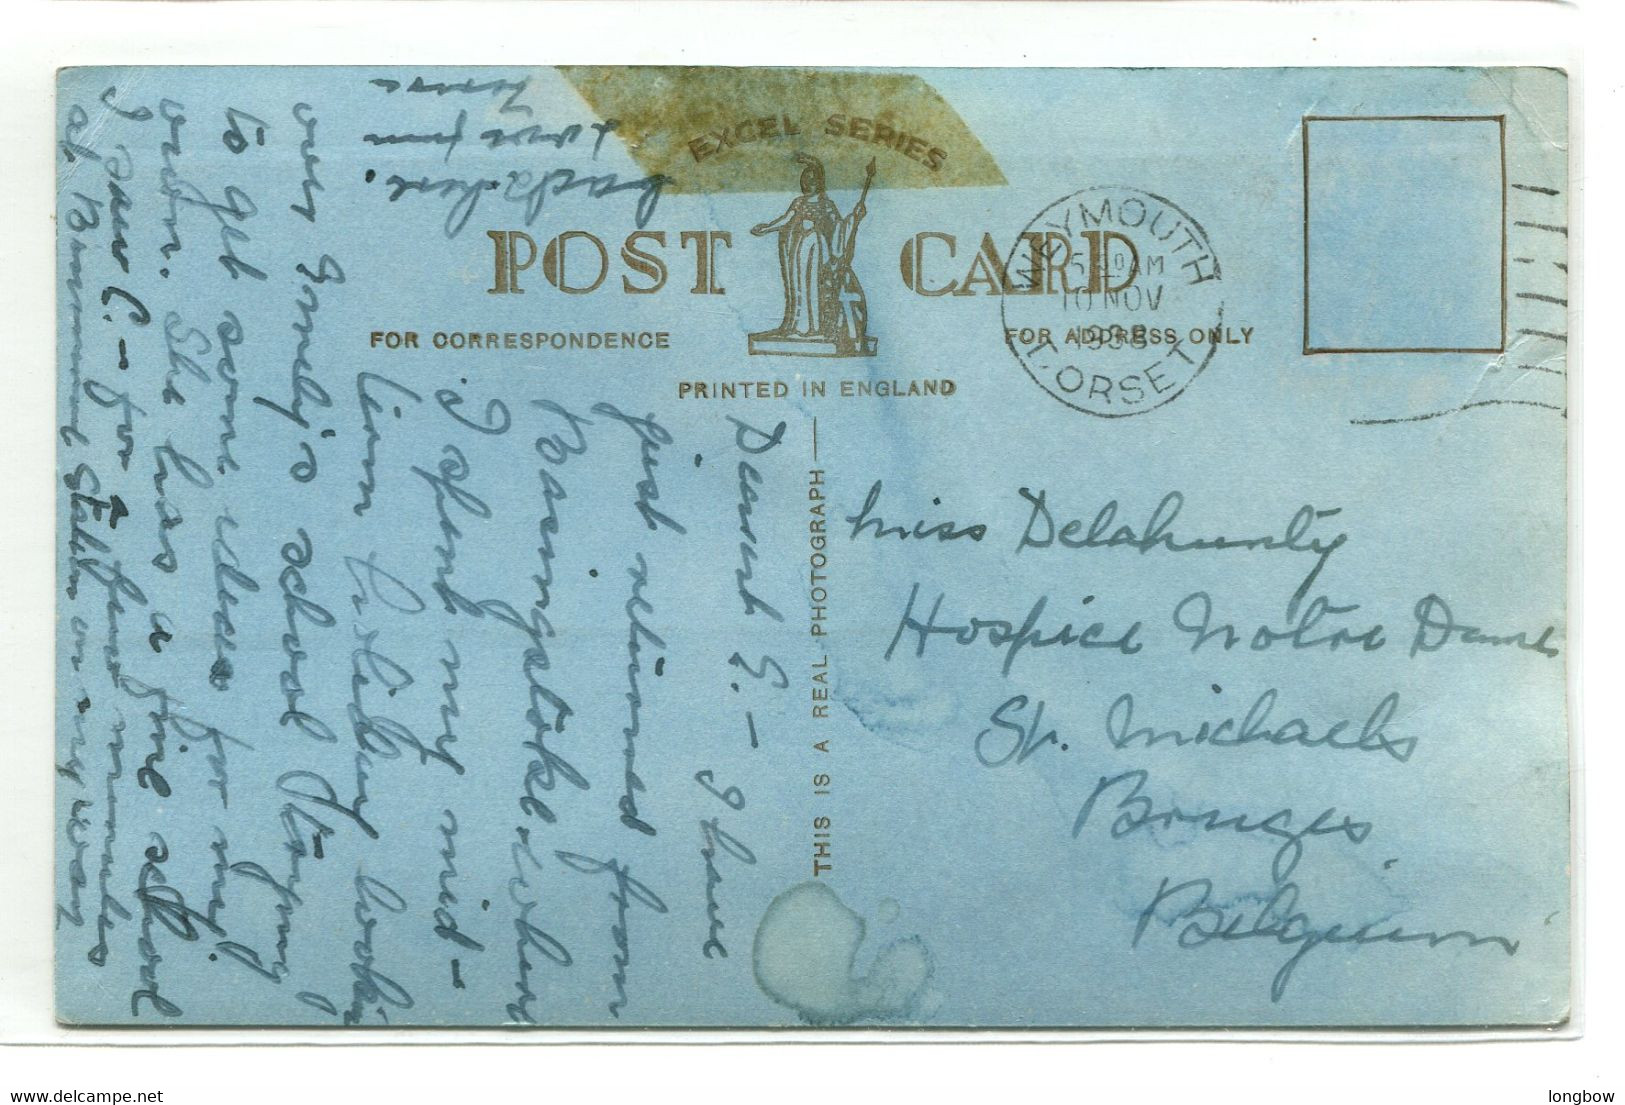 EXCEL SERIES
POST CARD
FOR CORRESPONDENCE
FOR ADDRESS ONLY
PRINTED IN ENGLAND
THIS IS A REAL PHOTOGRAPH
WEYMOUTH
5 30 AM
10 NOV
1938
DORSET
Miss Delahunty
Hospice Notre Dame
St. Michaels
Bruges
Belgium
Dearest E. - I have
just returned from
Basingstoke where
I spent my mid-
term holiday lookin
over Emily's school & trying
to get some ideas for my
own. She has a fine school
I saw C. - for a few minutes
at Bournemouth Station on my way
back here.
Love from
delcampe.net
longbow